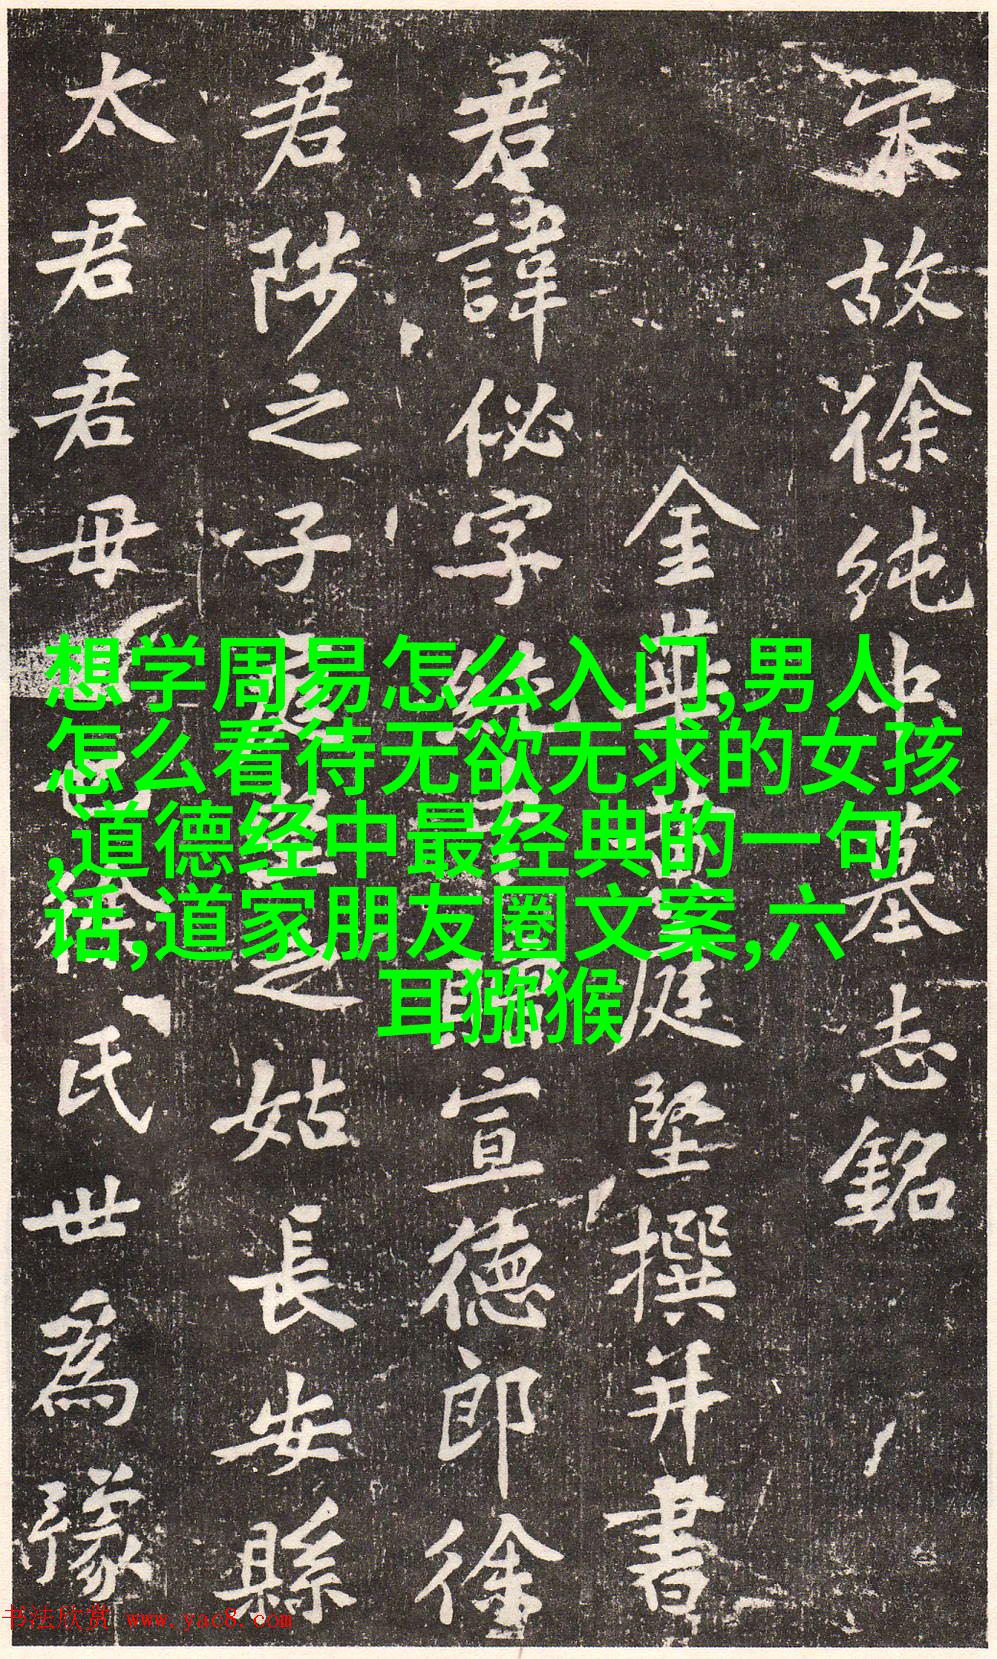 宋故徐纯中墓志銘
金華黄庭堅撰并書
君諱佖字純中宣德郎徐
君陟之子之姑長安縣
太君君毋徐氏世為豫
想学周易怎么入门,男人
怎么看待无欲无求的女孩
,道德经中最经典的一句
话,道家朋友圈文案,六
耳猕猴
书法欣赏 www.yac8.com